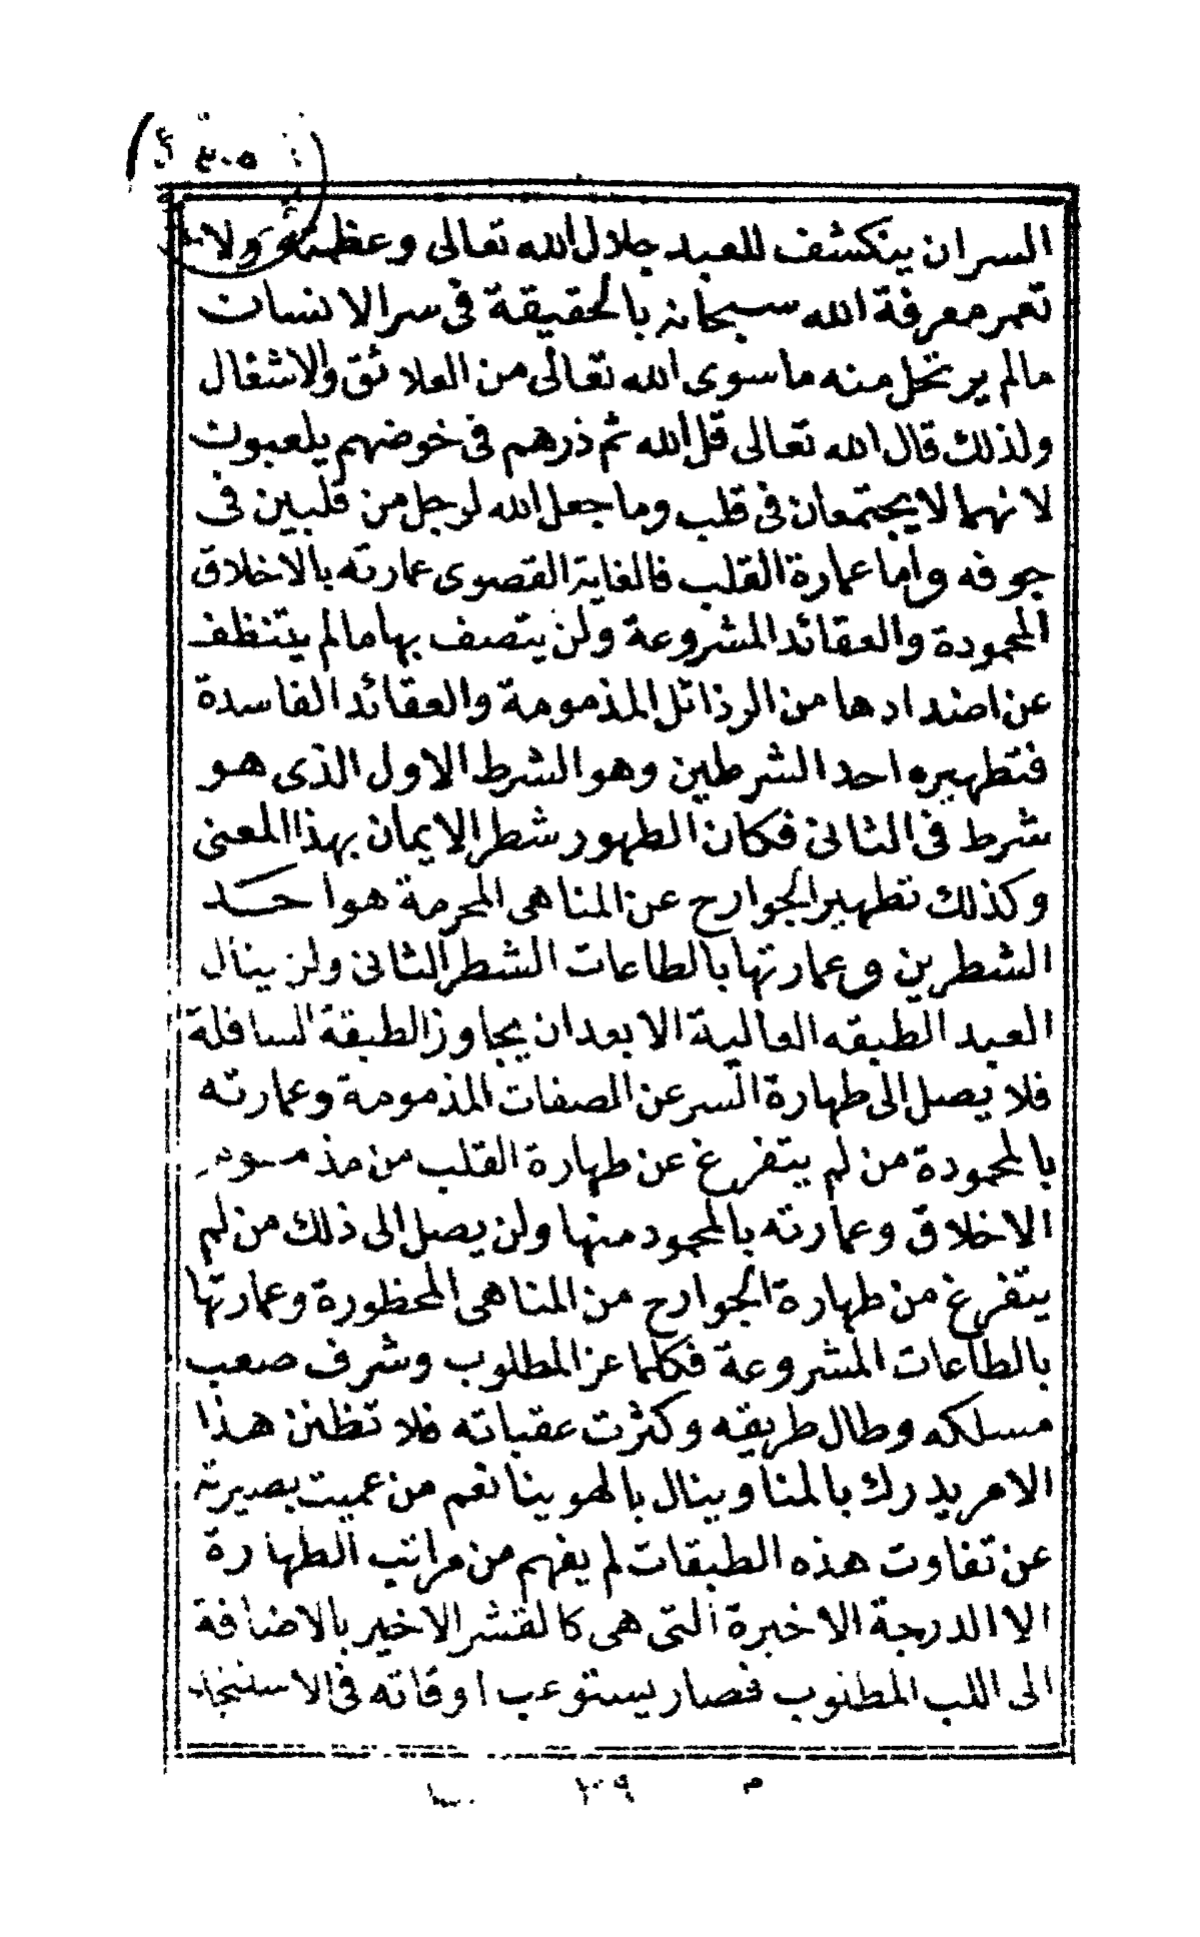 ٤٠٥
السر ان ينكشف للعبد جلال الله تعالى وعظمته ولا
تعمر معرفة الله سبحانه بالحقيقة فى سر الانسان
مالم يرتحل منه ما سوى الله تعالى من العلائق والاشغال
ولذلك قال الله تعالى قل الله ثم ذرهم فى خوضهم يلعبون
لانهما لا يجتمعان فى قلب وما جعل الله لرجل من قلبين فى
جوفه واما عمارة القلب فالغاية القصوى عمارته بالاخلاق
المحمودة والعقائد المشروعة ولن يتصف بها مالم يتنظف
عن اضدادها من الرذائل المذمومة والعقائد الفاسدة
فتطهيره احد الشرطين وهو الشرط الاول الذى هو
شرط فى الثانى فكان الطهور شطر الايمان بهذا المعنى
وكذلك تطهير الجوارح عن المناهى المحرمة هو احد
الشطرين وعمارتها بالطاعات الشطر الثانى ولن ينال
العبد الطبقه العالية الا بعد ان يجاوز الطبقة لسافلة
فلا يصل الى طهارة السر عن الصفات المذمومة وعمارته
بالمحمودة من لم يتفرغ عن طهارة القلب من مذموم
الاخلاق وعمارته بالمحمود منها ولن يصل الى ذلك من لم
يتفرغ من طهارة الجوارح من المناهى المحظورة وعمارتها
بالطاعات المشروعة فكلما عز المطلوب وشرف صعب
مسلكه وطال طريقه وكثرت عقباته فلا تظنن هذا
الامر يدرك بالمنا وينال بالهوينا نعم من عميت بصيرته
عن تفاوت هذه الطبقات لم يفهم من مراتب الطهارة
الا الدرجة الاخيرة التى هى كالقشر الاخير بالاضافة
الى اللب المطلوب فصار يستوعب اوقاته فى الاستنجاء
م ١٠٩